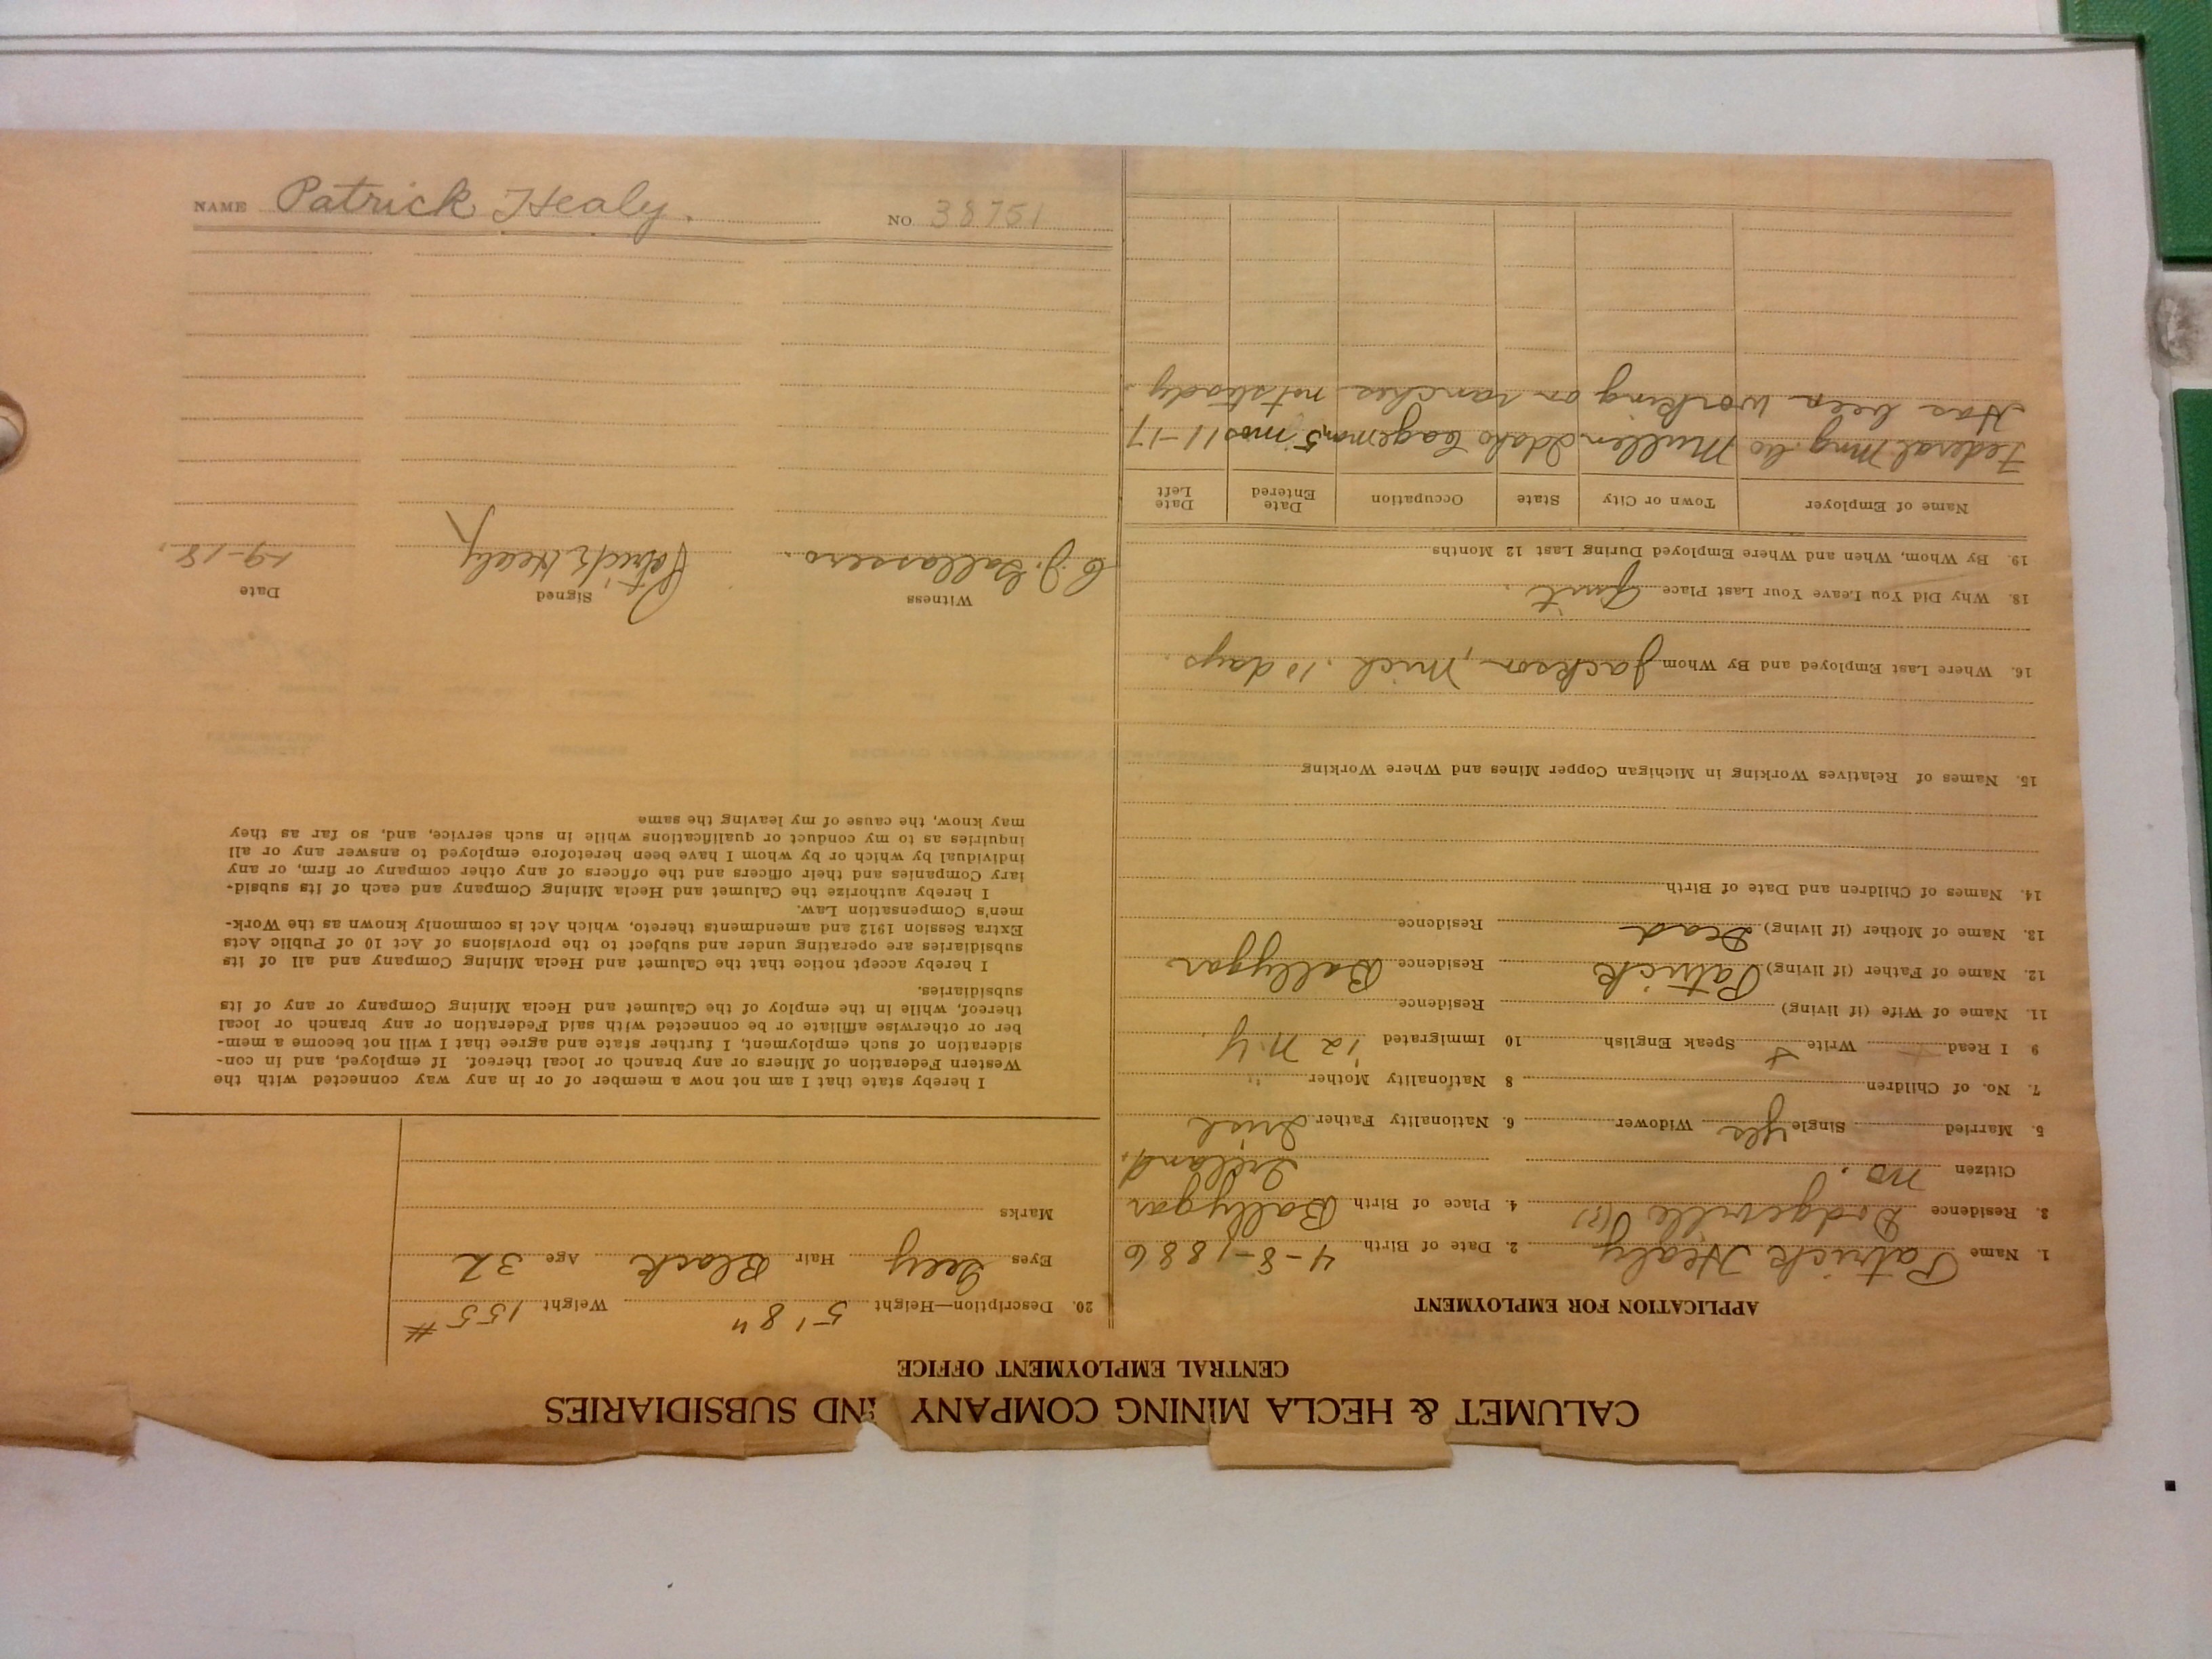 CALUMET & HECLA MINING COMPANY  ND SUBSIDIARIES
CENTRAL EMPLOYMENT OFFICE
APPLICATION FOR EMPLOYMENT
1. Name Patrick Healy 2. Date of Birth 4-8-1886
3. Residence Dodgeville (S) 4. Place of Birth Ballygar
Citizen no. Ireland.
5. Married Single yes Widower 6. Nationality Father Irish
7. No. of Children 8 Nationality Mother "
9 I Read Write Speak English 10 Immigrated '12 N.Y.
11. Name of Wife (if living) Residence
12. Name of Father (if living) Patrick Residence Ballygar
13. Name of Mother (if living) Dead Residence
14. Names of Children and Date of Birth
15. Names of Relatives Working in Michigan Copper Mines and Where Working
16. Where Last Employed and By Whom Jackson, Mich. 10 days.
18. Why Did You Leave Your Last Place Quit.
19. By Whom, When and Where Employed During Last 12 Months
Name of Employer Town or City State Occupation Date Entered Date Left
Federal Mng. Co Mullen Idaho Cageman 5 mos 11-17
Has been working on ranches not steady.
20. Description—Height 5' 8" Weight 155 #
Eyes Grey Hair Black Age 32
Marks
I hereby state that I am not now a member of or in any way connected with the
Western Federation of Miners or any branch or local thereof. If employed, and in con-
sideration of such employment, I further state and agree that I will not become a mem-
ber or otherwise affiliate or be connected with said Federation or any branch or local
thereof, while in the employ of the Calumet and Hecla Mining Company or any of its
subsidiaries.
I hereby accept notice that the Calumet and Hecla Mining Company and all of its
subsidiaries are operating under and subject to the provisions of Act 10 of Public Acts
Extra Session 1912 and amendments thereto, which Act is commonly known as the Work-
men's Compensation Law.
I hereby authorize the Calumet and Hecla Mining Company and each of its subsid-
iary Companies and their officers and the officers of any other company or firm, or any
individual by which or by whom I have been heretofore employed to answer any or all
inquiries as to my conduct or qualifications while in such service, and, so far as they
may know, the cause of my leaving the same
Witness Signed Date
C. J. Gallassero. Patrick Healy 1-9-18.
NAME Patrick Healy. NO. 38751